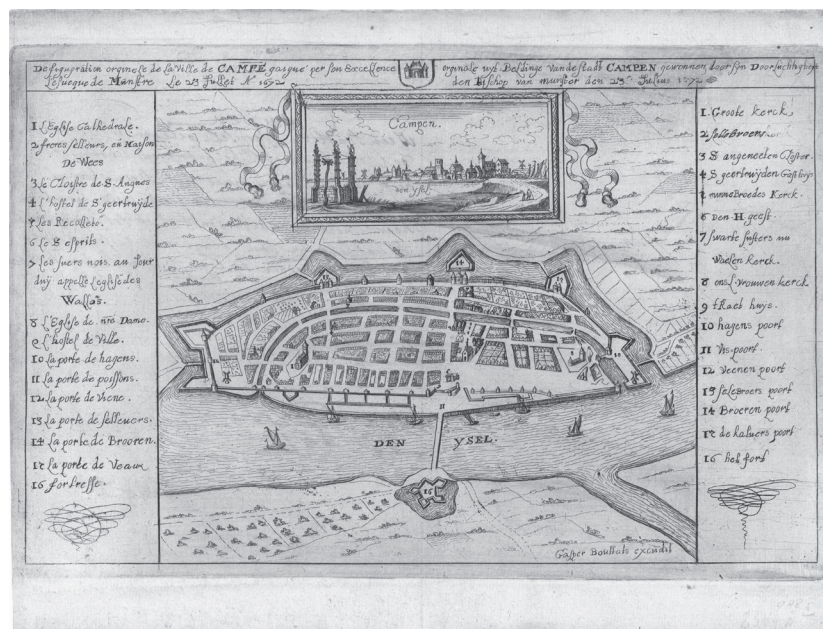 Defiguration originele de la Ville de CAMPE gaigné per son Excellence
Lesvesque de Munstre Le 23 Jullet A° 1672
orginale uyt Beldinge van de stadt CAMPEN gewonnen door syn Doorluchtigheyt
den Bischop van munster den 23 Julius 1672
1 L'Eglise Cathedrale.
2 freres selleurs, en Maison
De Wees
3 Le Cloistre de S. Angnes
4 L'hostel de St geertruijde
5 Les Recollets.
6 Le S esprits.
7 Les suers nois. au jour
duij appelle L'eglise des
Wallos.
8 L'Eglise de nre Dame.
9 L'hostel de Ville.
10 La porte de hagens.
11 La porte de poissons.
12 La porte de Viene.
13 La porte de selleuers.
14 La porte de Brooren.
15 La porte de Veaux
16 fortresse.
Campen.
den ysel
DEN YSEL.
11
16
Gasper Bouttats excudit
1. Groote kerck
2 seleBroens
3 S angeneeten Closter.
4 S geertruyden Gasthuys
5 minnebroeders Kerck.
6 Den H. geest
7 swarte susters nu
Waelen kerck.
8 ons L. vrouwen kerck
9 t Raet huys.
10 hagens poort
11 Vis-poort.
12 Veenen poort
13 seleBroen poort
14 Broeren poort
15 de kaluers poort
16 het fort